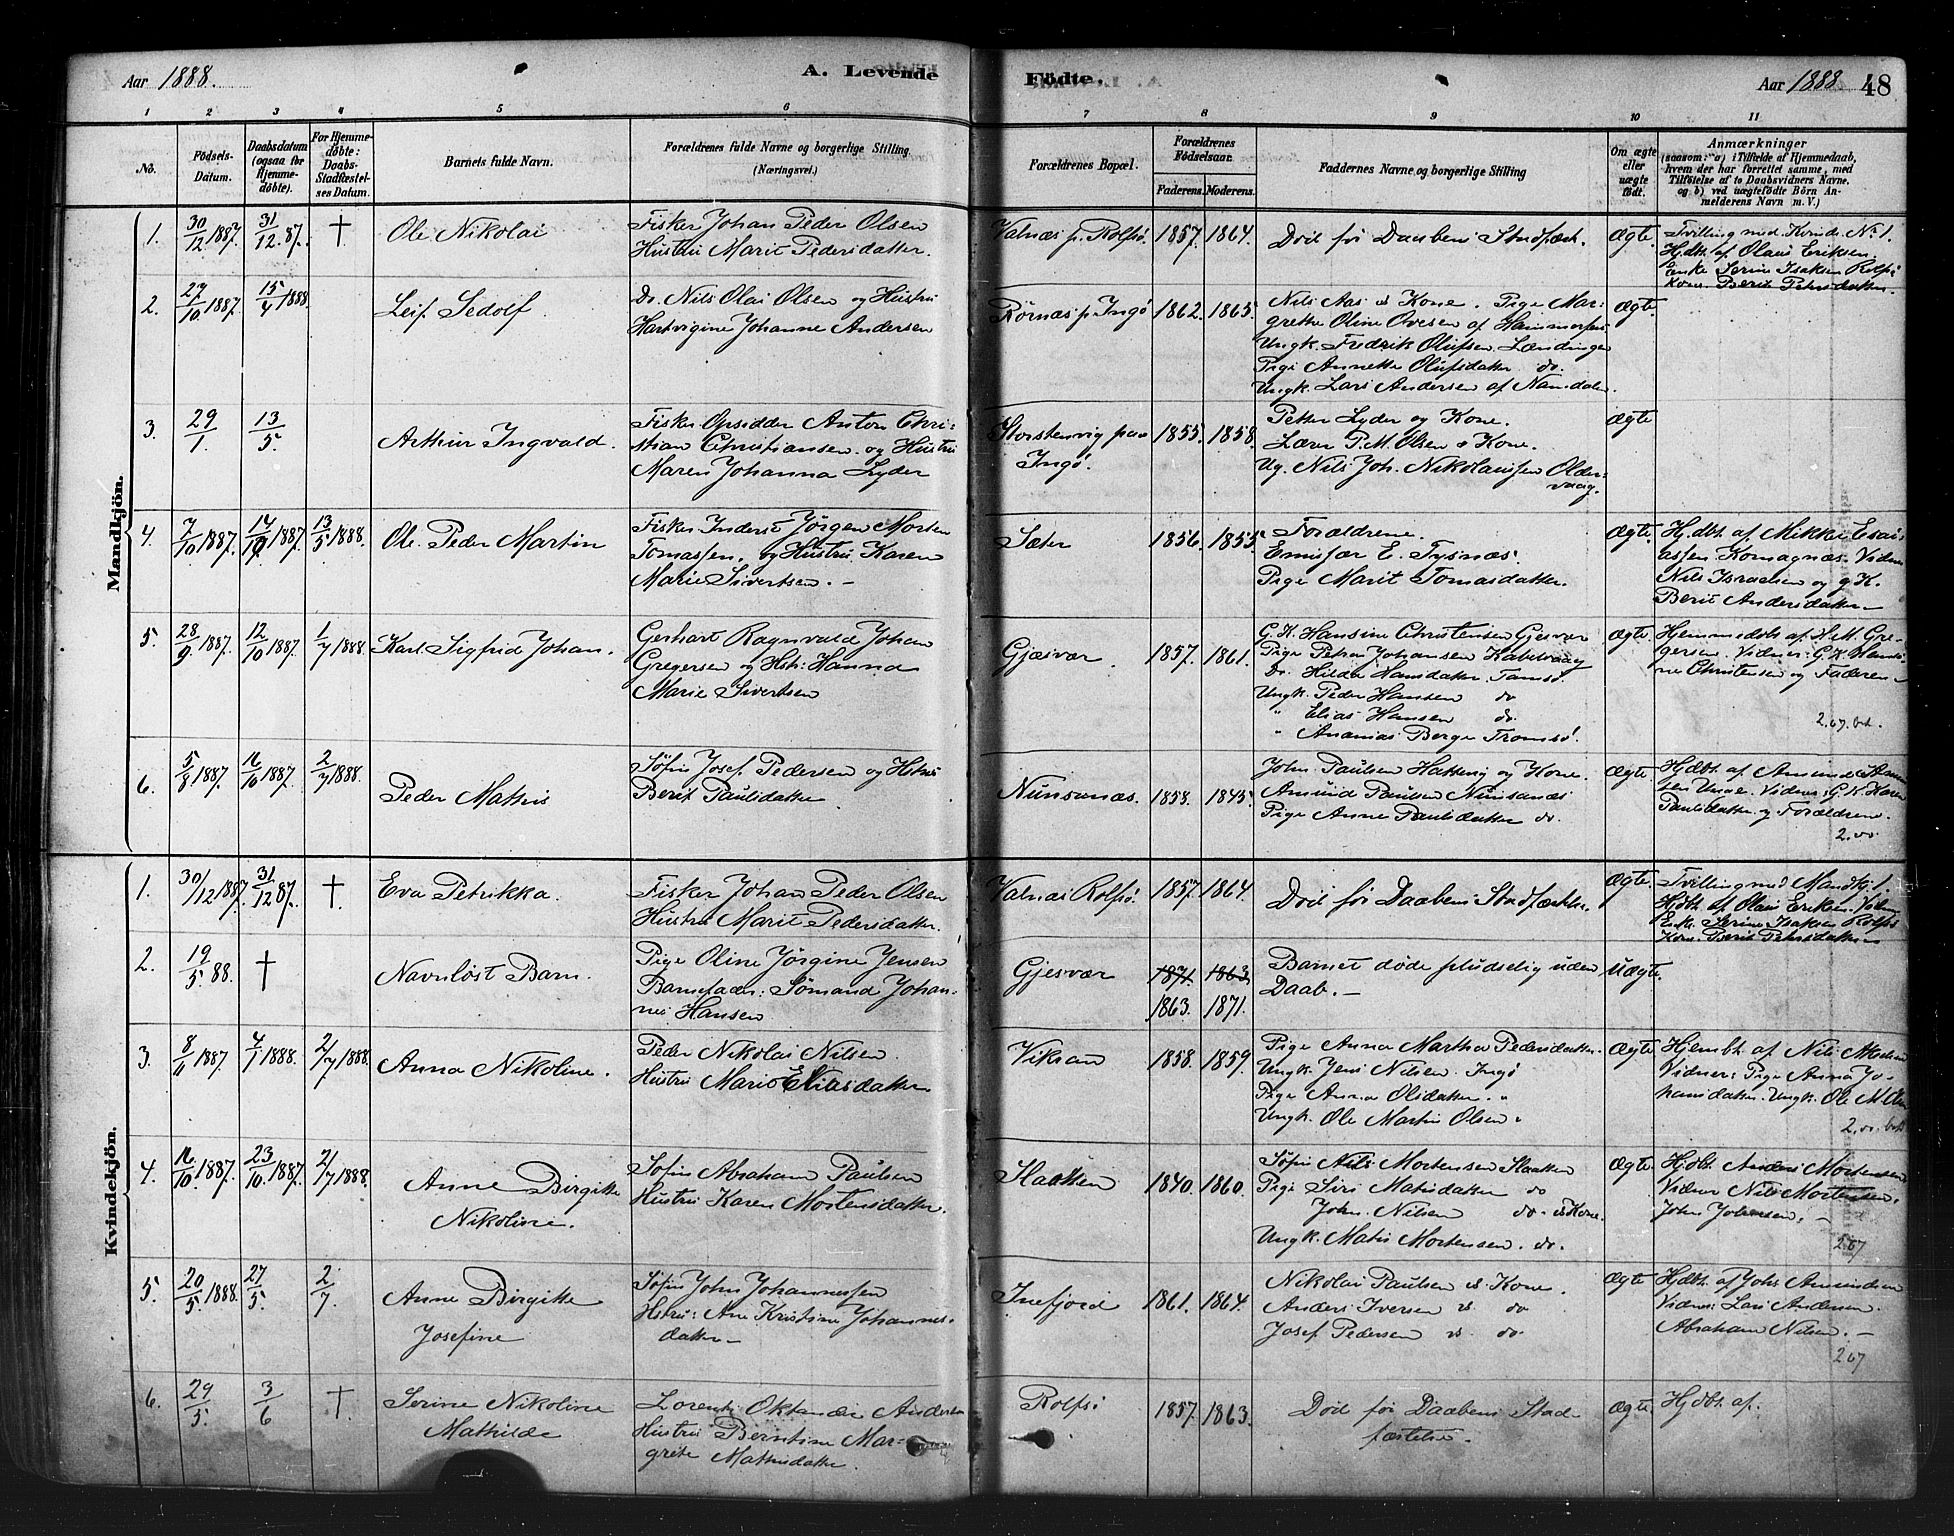 Aar 1888.
A. Levende
Födte.
Aar 1888
48
1 2 3 4 5 6 7 8 9 10 11
No.
Födsels-Datum.
Daabsdatum (ogsaa for Hjemmedöbte).
For Hjemmedöbte: Daabs-Stadfæstelses Datum.
Barnets fulde Navn.
Forældrenes fulde Navne og borgerlige Stilling (Næringsvei.)
Forældrenes Bopæl.
Forældrenes Födselsaar.
Faderens. Moderens.
Faddernes Navne og borgerlige Stilling
Om ægte eller uægte födt.
Anmærkninger
(saasom: a) i Tilfælde af Hjemmedaab, hvem der har forrettet samme, med Tilföielse af to Daabsvidners Navne, og b) ved uægtefödte Börn Anmelderens Navn m. V.)
Mandkjön.
1. 30/12 1887. 31/12 87. † Ole Nikolai
Fisker Johan Peder Olsen
Hustru Marit Pedersdatter.
Valnæs p. Rolfsö 1857. 1864. Död før Daabens Stadfæst. Ægte.
Tvilling med Kvindk. No 1.
Hjdbt. af Olaus Eriksen
Enke Serine Isaksen Rolfsö
Kone Berit Petersdatter.
2. 27/10 1887. 15/4 1888 Leif Sedolf
Do. Nils Olai Olsen og Hustru
Hartvigine Johanne Andersen
Rörnæs p. Ingö 1862. 1865.
Nils Aas & Kone. Pige Mar-
grethe Oline Ovesen af Hammerfest
Ungk. Fredrik Olufsen Lændingen
Pige Annette Olufsdatter do.
Ungk. Lars Andersen af Namdalen.
Ægte.
3. 29/1. 13/5 Arthur Ingvald.
Fisker Opsidder Anton Chri-
stian Christiansen og Hustru
Maren Johanna Lyder
Storstenvig paa
Ingö.
1855. 1858.
Petter Lyder og Kone.
Lærer P. M. Olsen & Kone.
Ug. Nils Joh. Nikolaussen Older-
vaag.
Ægte
4. 7/10 1887. 14/10 1887. 13/5 1888. Ole Peder Martin
Fisker Inderst Jörgen Morten
Tomassen, og Hustru Karen
Marie Sivertsen. —
Sæter 1856. 1855
Forældrene.
Emisær E. Tysnæs.
Pige Marit Tomasdatter.
Ægte.
Hjdbt. af Mikkel Esai-
assen Komagnæs. Vidner
Nils Israelsen og g. K.
Berit Andersdatter —
5. 28/9 1887. 12/10 1887. 1/7 1888 Karl Sigfrid Johan.
Gerhart Ragnvald Johan
Gregersen og Hstr: Hanna
Marie Sivertsen
Gjæsvær. 1857. 1861.
G. K. Hansine Christensen Gjesvær
Pige Petra Johansen Kabelvaag
Do. Hilda Hansdatter Tamsö.
Ungk. Peder Hansen do
" Elias Hansen do.
" Ananias Berge Tromsö.
Ægte.
Hjemmedöbt af H. M. Gre-
gersen. Vidner: G. K. Hansi-
ne Christensen og Faderen —
2.67. bet.
6. 5/8 1887. 16/10 1887. 2/7 1888. Peder Mathis
Söfin Josef Pedersen og Hstru
Berit Paulsdatter
Nunsanæs. 1858. 1845.
John Paulsen Hatteng og Kone.
Amund Paulsen Nunsanæs
Pige Anne Paulsdatter do.
Ægte.
Hjdbt. af Amund
Vidner: G. K. Karen
Paulsdatter og Forældren.
2.00
Kvindekjön.
1. 30/12 1887. 31/12 87. †. Eva Petrikka.
Fisker Johan Peder Olsen
Hustru Marit Pedersdatter.
Valnæs Rolfsö. 1857. 1864. Död før Daabens Stadfæstelse. Ægte.
Tvilling med Mandkj. 1.
Hjdbt. af Olaus Eriksen. Vidner
Enke Serine Isaksen Rolfsö
Kone Berit Petersdatter
2. 19/5. 88. † Navnlöst Barn.
Pige Oline Jörgine Jensen
Barnefader: Sömand Johan-
nes Hansen
Gjesvær 1871. 1863.
1863. 1871.
Barnet döde pludselig uden
Daab. —
Uægte.
3. 8/11 1887. 4/1 1888. 2/7 1888. Anna Nikoline.
Peder Nikolai Nilsen
Hustru Marie Eliasdatter
Viksan 1858. 1859.
Pige Anna Martha Pedersdatter.
Ungk. Jens Nilsen. Ingö
Pige Anna Olsdatter. "
Ungk. Ole Martin Olsen "
Ægte
Hjembt. af Nils
Vidner: Pige Anna Jo-
hansdatter. Ungk. Ole M. Olsen
2.00. bet
4. 16/10 1887. 23/10 1887. 2/7 1888. Anne Birgitte
Nikoline.
Söfin Abraham Paulsen
Hustru Karen Mortensdatter.
Slaatten 1840. 1860.
Söfin Nils Mortensen Slaatten
Pige Siri Matisdatter do
John Nilsen do. & Kone.
Ungk. Matis Mortensen. do.
Ægte
Hjdbt. Anders Mortensen
Vidner Nils Mortensen.
John Johnsen. —
2.67
5. 20/5 1888. 27/5. 2/7 Anne Birgitte
Josefine
Söfin John Johannessen
Hstru: Ane Kristine Johannes-
datter —
Inefjord 1861. 1864.
Nikolai Paulsen & Kone.
Anders Iversen & do
Josef Pedersen & do.
Ægte
Hjdbt. af Johs Amundsen
Vidner Lars Andersen
Abraham Nilsen. —
2.67
6. 29/5. 3/6 †. Serine Nikoline
Mathilde
Lorents Oktanær Andersen
Hustru Berntine Mar-
grete Mathisdatter.
Rolfsö 1857. 1863.
Död før Daabens Stad-
fæstelse.
Ægte
Hjdbt. af.